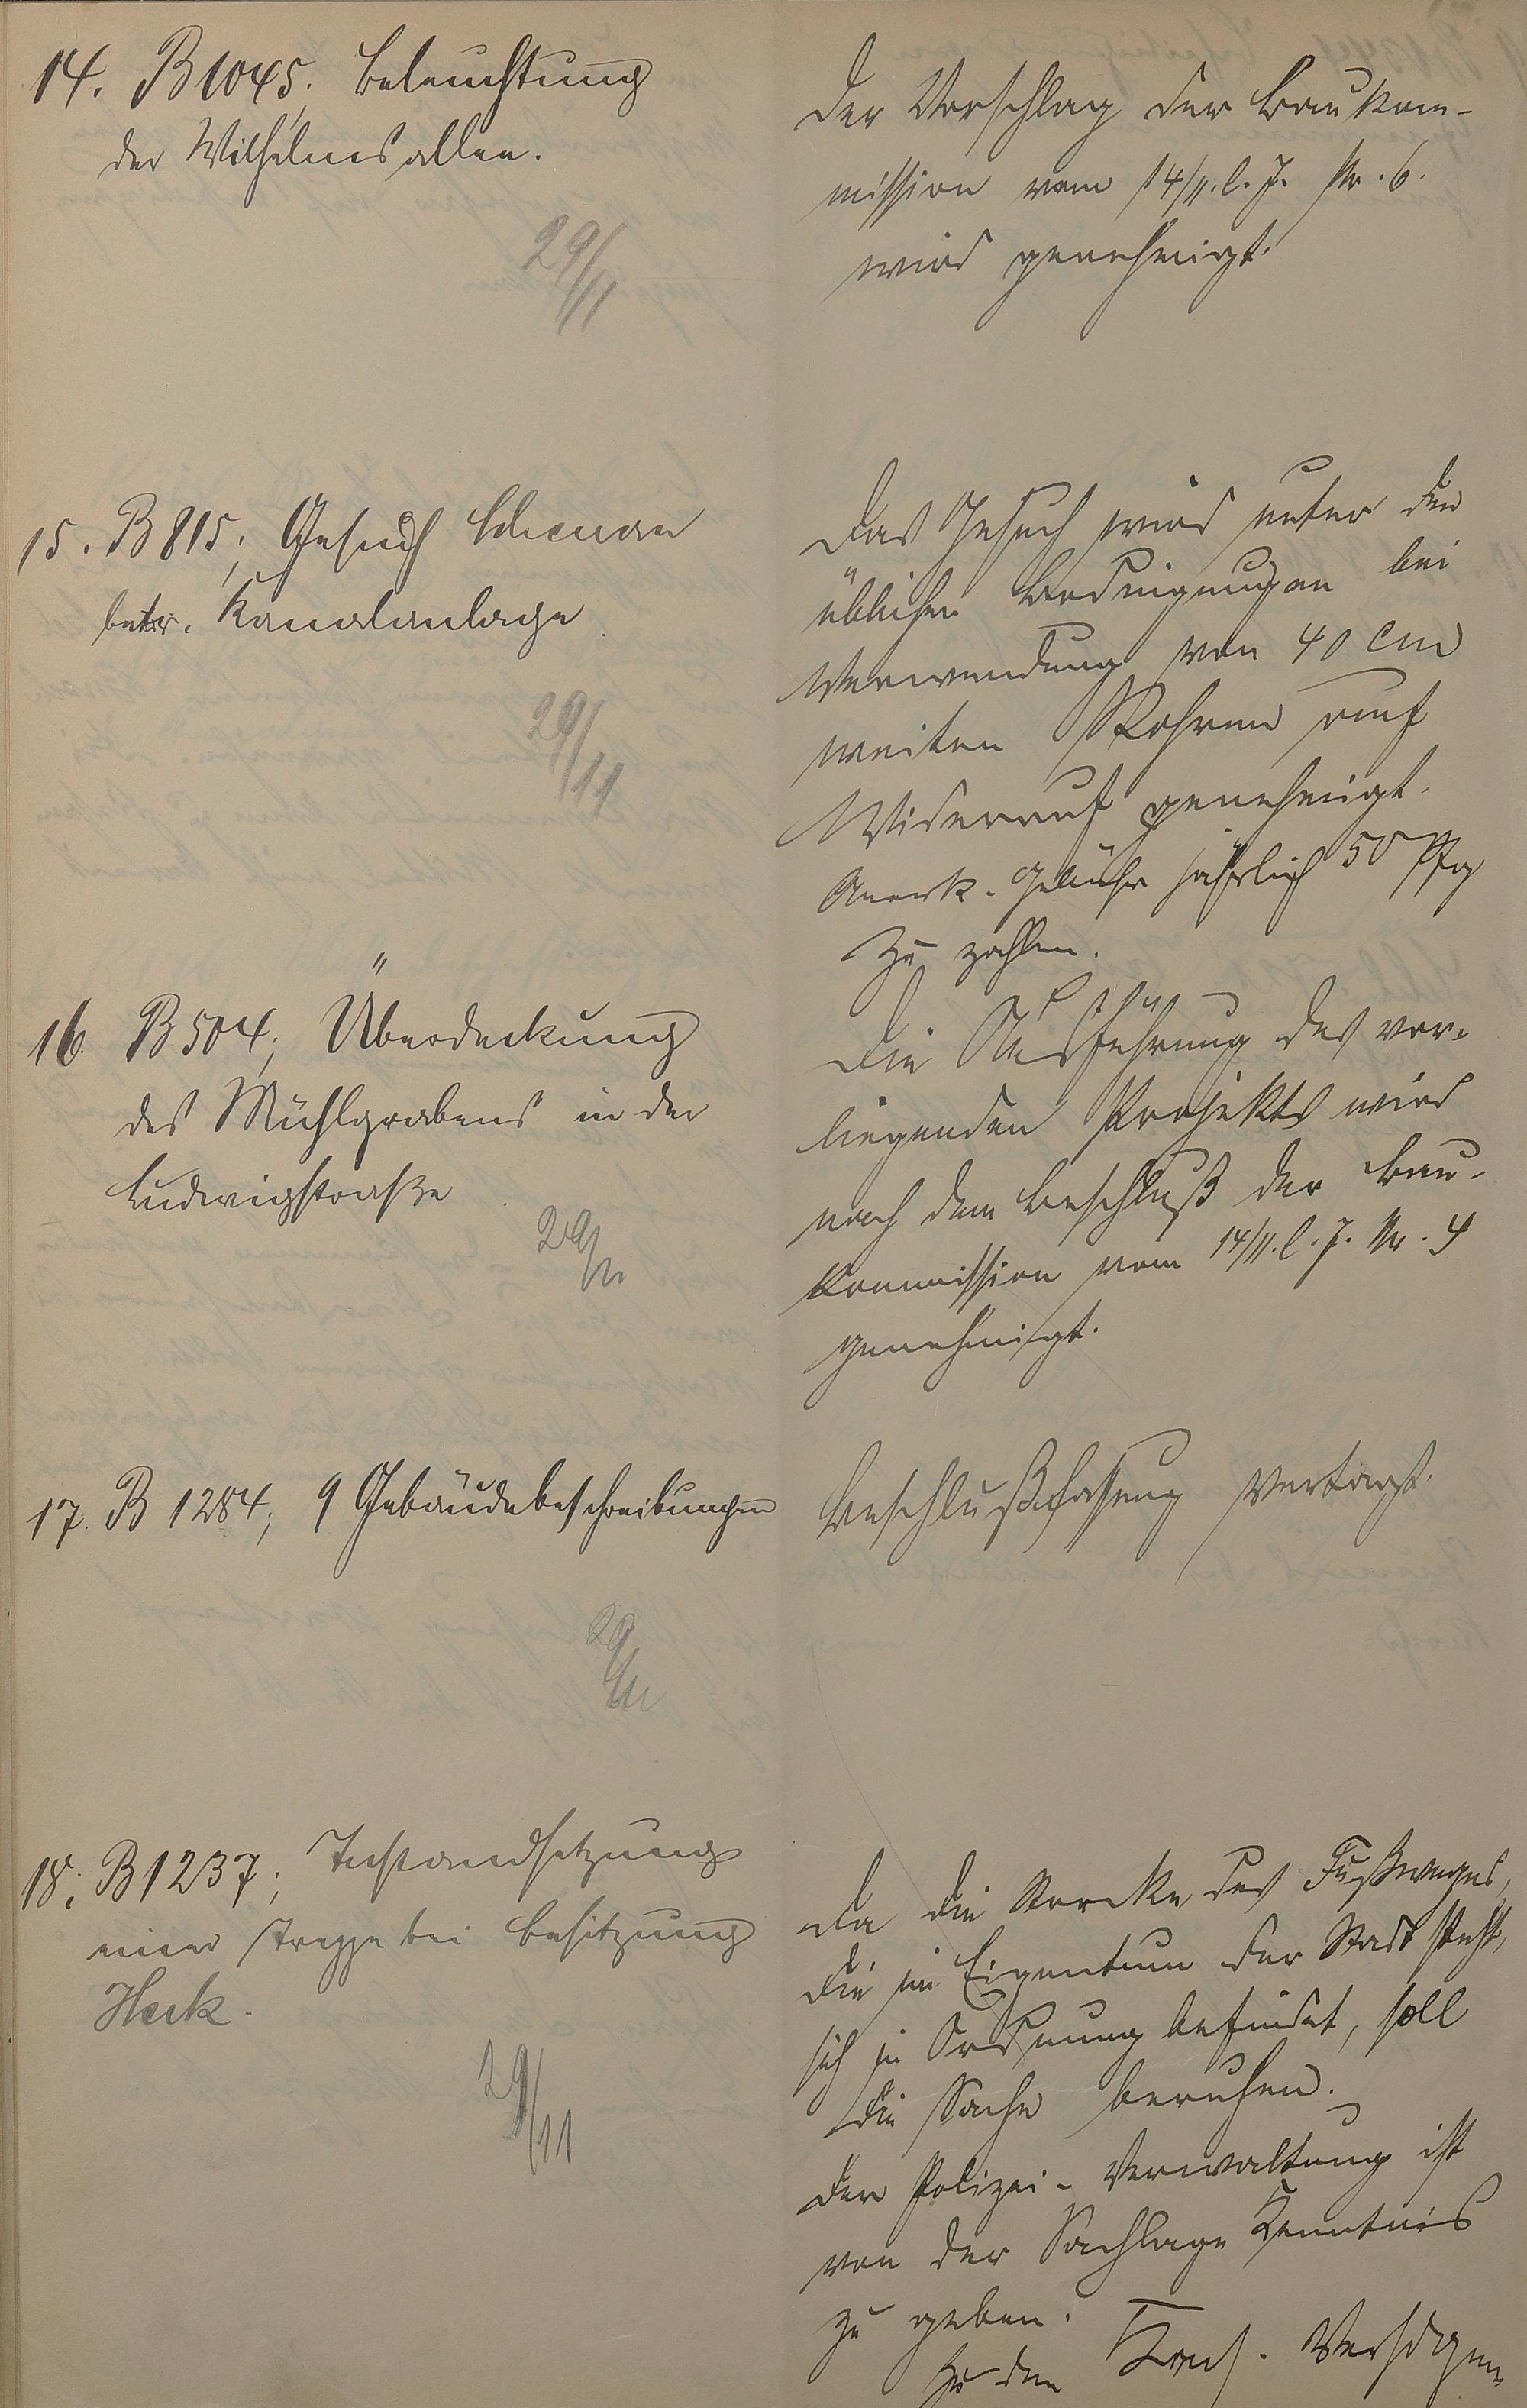 14. B 1045; Beleuchtung
der Wilhelmsallee.
29/11
Der Vorschlag der Baukom-
mission vom 14/11. l. J. Nr. 6.
wird genehmigt.
15. B 815; Gesuch
betr. Kanalanlage
29/11
Das Gesuch wird unter den
üblichen Bedingungen bei
Verwendung von 40 cm
weiten Rohren auf
Widerruf genehmigt.
Anerk. Gebühr jährlich 50 Pfg
zu zahlen.
16. B 504; Überdeckung
des Mühlgrabens in der
Ludwigstraße
29/11
Die Ausführung des vor-
liegenden Projekts wird
nach dem Beschluß der Bau-
kommission vom 14/11. l. J. Nr. 4
genehmigt.
17. B 1284; 9 Gebäudebeschreibungen
29/11
Beschlußfassung vertagt.
18. B 1237; Instandsetzung
einer Treppe bei Besitzung
Heck.
29/11
Da die Strecke des Fußweges,
die im Eigentum der Stadt steht,
sich in Ordnung befindet, soll
die Sache beruhen.
Der Polizei-Verwaltung ist
von der Sachlage Kenntnis
zu geben.
Zu den